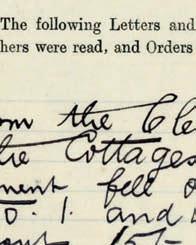 The following Letters and
hers were read, and Orders
om the Cle
he Cottages
ment fell
D. 1. and